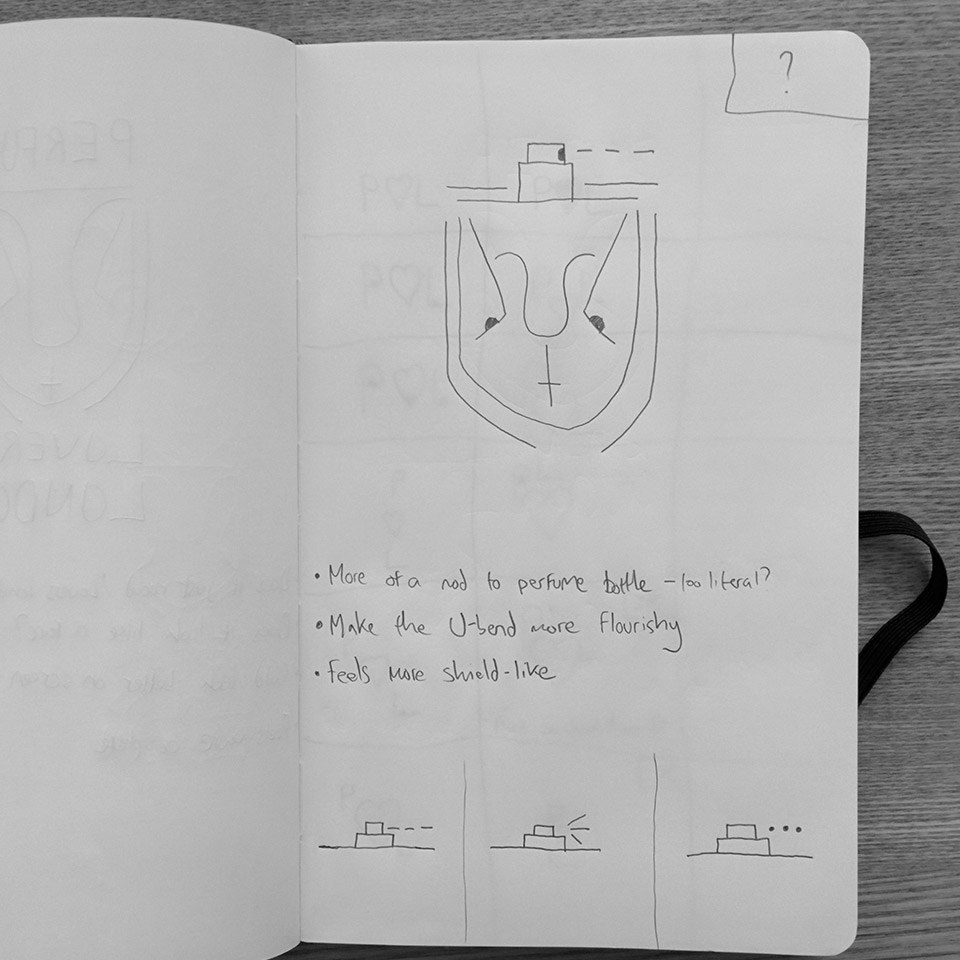 ?
• More of a nod to perfume bottle - too literal?
• Make the U-bend more flourishy
• Feels more shield-like